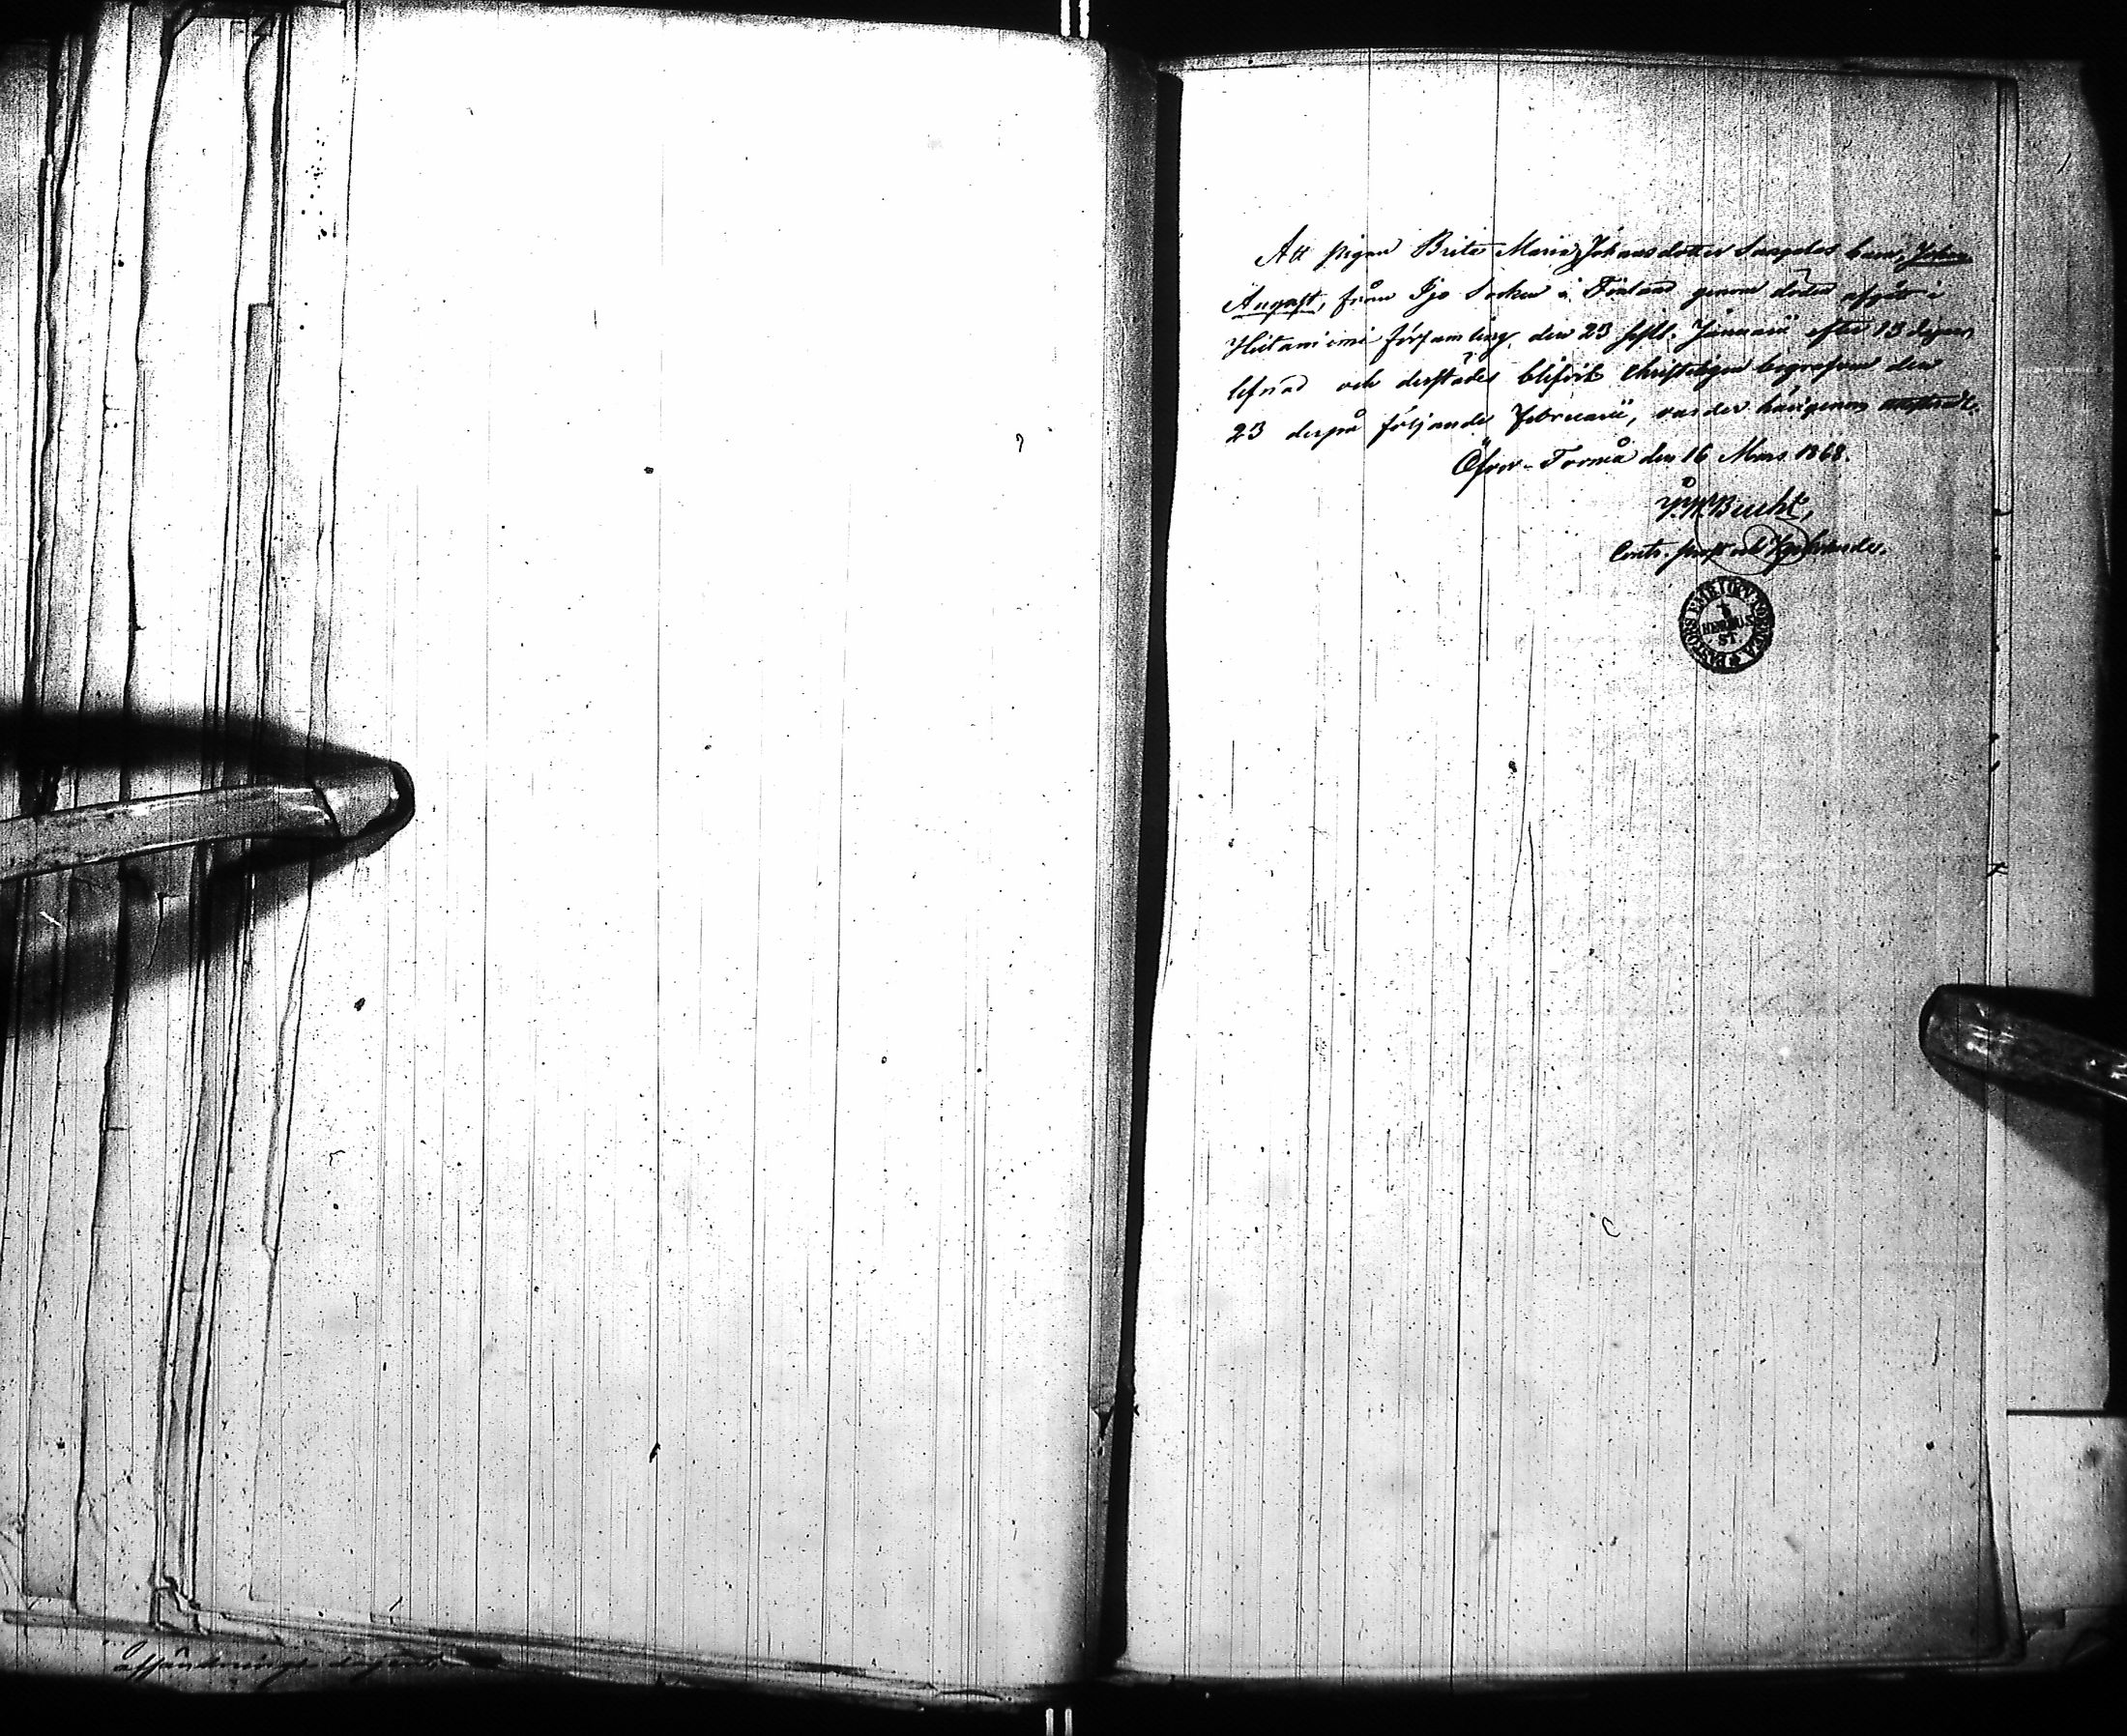 Att pigan Brita Maria Johansdotter Sangelas barn, Johan
August, från Ijo Socken i Finland genom döden afgått i
Hietaniemi församling den 23 sistl. Januarii efter 13 dagars
lefnad och derstädes blifvit christeligen begrafven den
23 derpå följande Februarii, varder härigenom
Öfver-Torneå den 16 Mars 1868.
Bucht,
Contr. prost och Kyrkoherde.
PASTORS EMB. I ÖFV. TORNEÅ
HERNÖS.
ST.